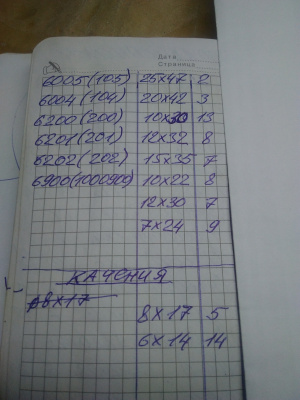 Дата
Страница
6005(105) 25x47 2
6004(104) 20x42 3
6200(200) 10x30 13
6201(201) 12x32 8
6202(202) 15x35 7
6900(1000900) 10x22 8
12x30 7
7x24 9
КАЧЕНИЯ
8x17
8x17 5
6x14 14